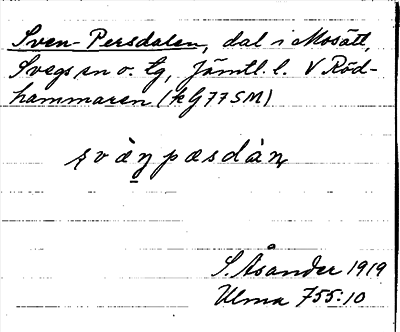 Sven-Persdalen, dal i Mosätt,
Svegs sn o. tg, Jämtl. l. V Röd-
hammaren (kG77SM)
svàn̠pæsdàn
S. Åsander 1919
Ulma 755:10